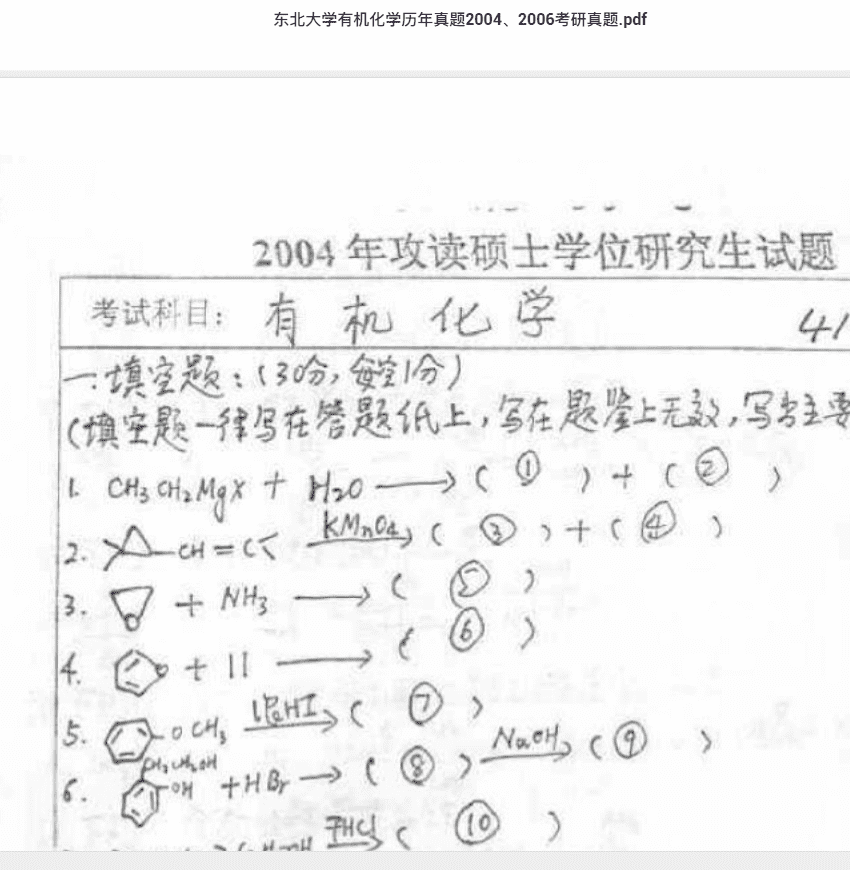 东北大学有机化学历年真题2004、2006考研真题.pdf
2004 年攻读硕士学位研究生试题
考试科目: 有机化学 41
一.填空题:(30分,每空1分)
(填空题一律写在答题纸上,写在题签上无效,写出主要
1. CH3CH2MgX + H2O ⟶ ( ① ) + ( ② )
2. CH=C KMnO4 ( ③ ) + ( ④ )
3. O + NH3 ⟶ ( ⑤ )
4. + || ⟶ ( ⑥ )
5. OCH3 HI ( ⑦ )
6. CH2CH2OH OH + HBr ⟶ ( ⑧ ) NaOH ( ⑨ )
HCl ( ⑩ )